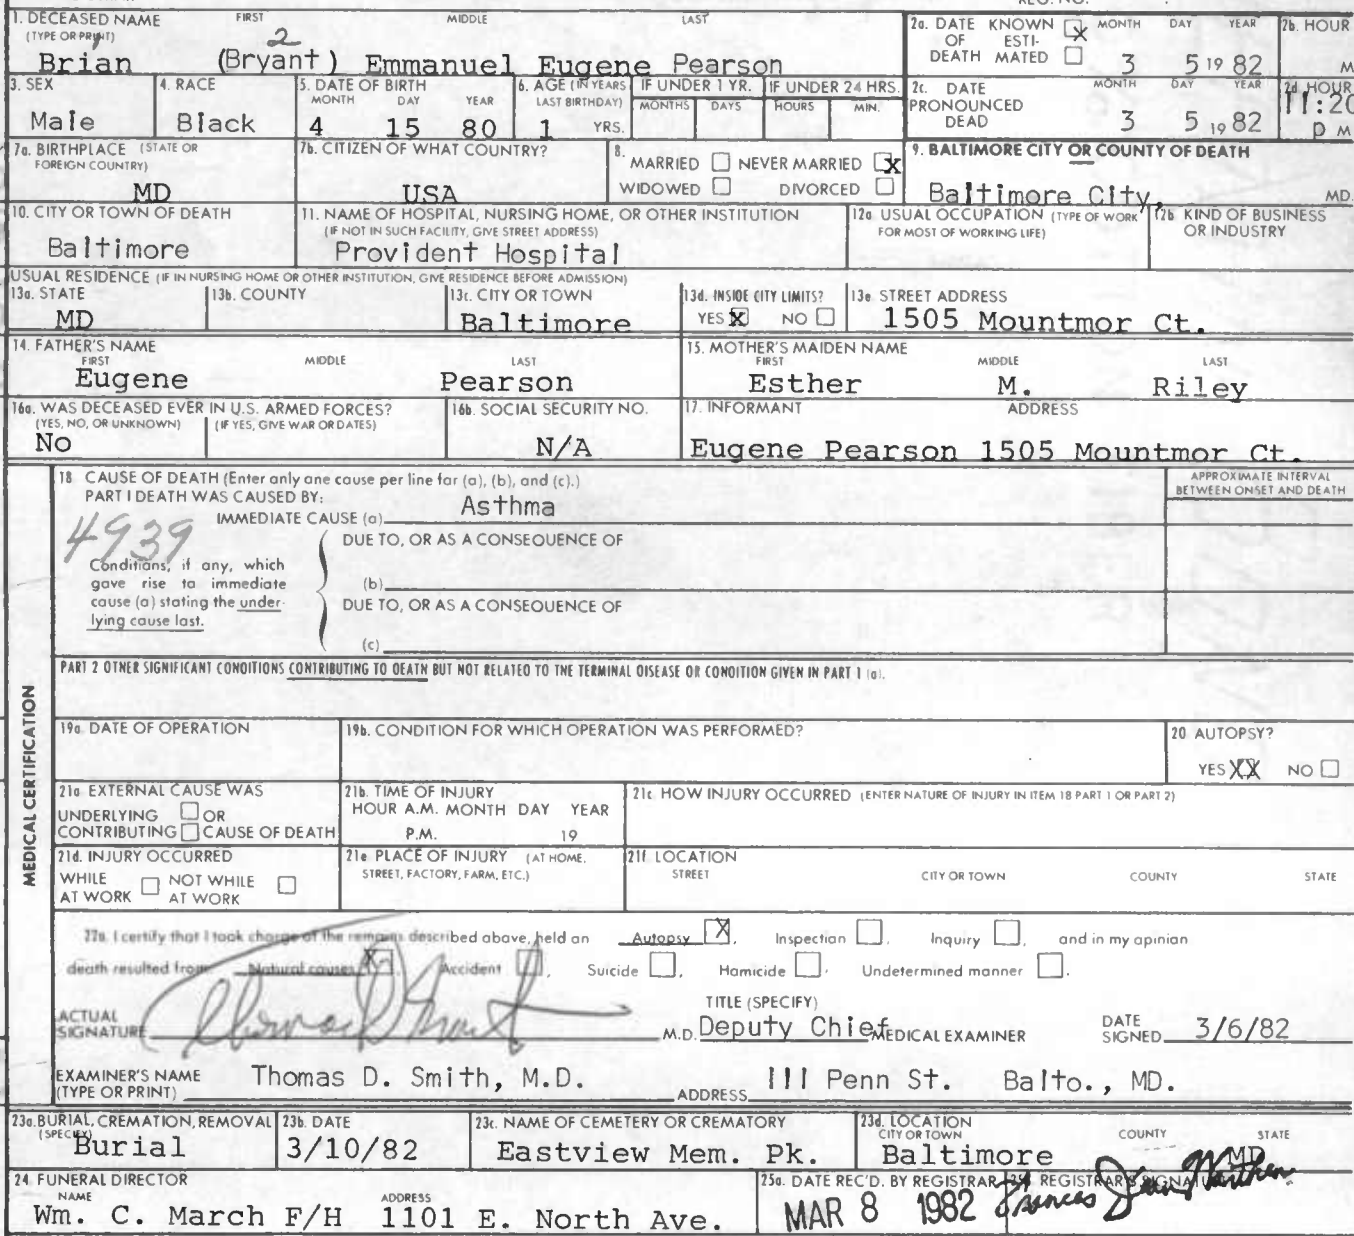 REG. NO.
1. DECEASED NAME FIRST MIDDLE LAST
(TYPE OR PRINT)
2
Brian (Bryant) Emmanuel Eugene Pearson
2a. DATE KNOWN X MONTH DAY YEAR 2b. HOUR
OF ESTI-
DEATH MATED 3 5 19 82 M
3. SEX 4. RACE 5. DATE OF BIRTH 6. AGE (IN YEARS IF UNDER 1 YR. IF UNDER 24 HRS.
MONTH DAY YEAR LAST BIRTHDAY) MONTHS DAYS HOURS MIN.
Male Black 4 15 80 1 YRS.
2c. DATE MONTH DAY YEAR 2d. HOUR
PRONOUNCED 11:20
DEAD 3 5 19 82 P M
7a. BIRTHPLACE (STATE OR
FOREIGN COUNTRY)
MD
7b. CITIZEN OF WHAT COUNTRY?
USA
8.
MARRIED NEVER MARRIED X
WIDOWED DIVORCED
9. BALTIMORE CITY OR COUNTY OF DEATH
Baltimore City, MD.
10. CITY OR TOWN OF DEATH
Baltimore
11. NAME OF HOSPITAL, NURSING HOME, OR OTHER INSTITUTION
(IF NOT IN SUCH FACILITY, GIVE STREET ADDRESS)
Provident Hospital
12a USUAL OCCUPATION (TYPE OF WORK
FOR MOST OF WORKING LIFE)
12b. KIND OF BUSINESS
OR INDUSTRY
USUAL RESIDENCE (IF IN NURSING HOME OR OTHER INSTITUTION, GIVE RESIDENCE BEFORE ADMISSION)
13a. STATE 13b. COUNTY 13c. CITY OR TOWN 13d. INSIDE CITY LIMITS? 13e STREET ADDRESS
MD Baltimore YES X NO 1505 Mountmor Ct.
14. FATHER'S NAME
FIRST MIDDLE LAST
Eugene Pearson
15. MOTHER'S MAIDEN NAME
FIRST MIDDLE LAST
Esther M. Riley
16a. WAS DECEASED EVER IN U.S. ARMED FORCES?
(YES, NO, OR UNKNOWN) (IF YES, GIVE WAR OR DATES)
No
16b. SOCIAL SECURITY NO.
N/A
17. INFORMANT ADDRESS
Eugene Pearson 1505 Mountmor Ct.
MEDICAL CERTIFICATION
18 CAUSE OF DEATH (Enter only one cause per line for (a), (b), and (c).)
PART I DEATH WAS CAUSED BY:
APPROXIMATE INTERVAL
BETWEEN ONSET AND DEATH
IMMEDIATE CAUSE (a) Asthma
4939
DUE TO, OR AS A CONSEQUENCE OF
Conditions, if any, which
gave rise to immediate
cause (a) stating the under-
lying cause last.
(b)
DUE TO, OR AS A CONSEQUENCE OF
(c)
PART 2 OTHER SIGNIFICANT CONDITIONS CONTRIBUTING TO DEATH BUT NOT RELATED TO THE TERMINAL DISEASE OR CONDITION GIVEN IN PART 1 (a).
19a. DATE OF OPERATION 19b. CONDITION FOR WHICH OPERATION WAS PERFORMED? 20 AUTOPSY?
YES XX NO
21a EXTERNAL CAUSE WAS
UNDERLYING OR
CONTRIBUTING CAUSE OF DEATH
21b. TIME OF INJURY
HOUR A.M. MONTH DAY YEAR
P.M. 19
21c HOW INJURY OCCURRED (ENTER NATURE OF INJURY IN ITEM 18 PART 1 OR PART 2)
21d. INJURY OCCURRED
WHILE NOT WHILE
AT WORK AT WORK
21e PLACE OF INJURY (AT HOME,
STREET, FACTORY, FARM, ETC.)
21f LOCATION
STREET CITY OR TOWN COUNTY STATE
22a. I certify that I took charge of the remains described above, held an Autopsy X, Inspection, Inquiry, and in my opinion
death resulted from Natural causes X, Accident, Suicide, Homicide, Undetermined manner.
ACTUAL
SIGNATURE Thomas D. Smith M.D.
TITLE (SPECIFY)
Deputy Chief MEDICAL EXAMINER
DATE
SIGNED 3/6/82
EXAMINER'S NAME
(TYPE OR PRINT) Thomas D. Smith, M.D. ADDRESS 111 Penn St. Balto., MD.
23a. BURIAL, CREMATION, REMOVAL 23b. DATE 23c. NAME OF CEMETERY OR CREMATORY 23d. LOCATION
(SPECIFY) CITY OR TOWN COUNTY STATE
Burial 3/10/82 Eastview Mem. Pk. Baltimore MD
24. FUNERAL DIRECTOR
NAME ADDRESS
Wm. C. March F/H 1101 E. North Ave.
25a. DATE REC'D. BY REGISTRAR
MAR 8 1982
REGISTRAR'S SIGNATURE
Frances Jean Warthen